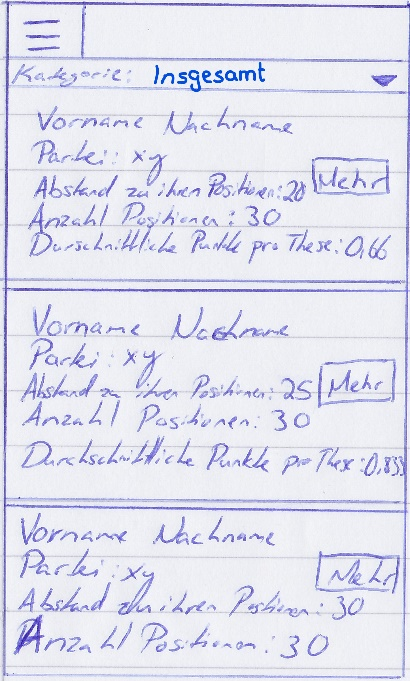 Kategorie: Insgesamt
Vorname Nachname
Partei: xy
Mehr
Abstand zu ihren Positionen: 20
Anzahl Positionen: 30
Durschnittliche Punkte pro These: 0,66
Vorname Nachname
Partei: xy
Abstand zu ihren Positionen: 25 Mehr
Anzahl Positionen: 30
Durchschnittliche Punkte pro These: 0,833
Vorname Nachname
Partei: xy Mehr
Abstand zu ihren Positionen: 30
Anzahl Positionen: 30